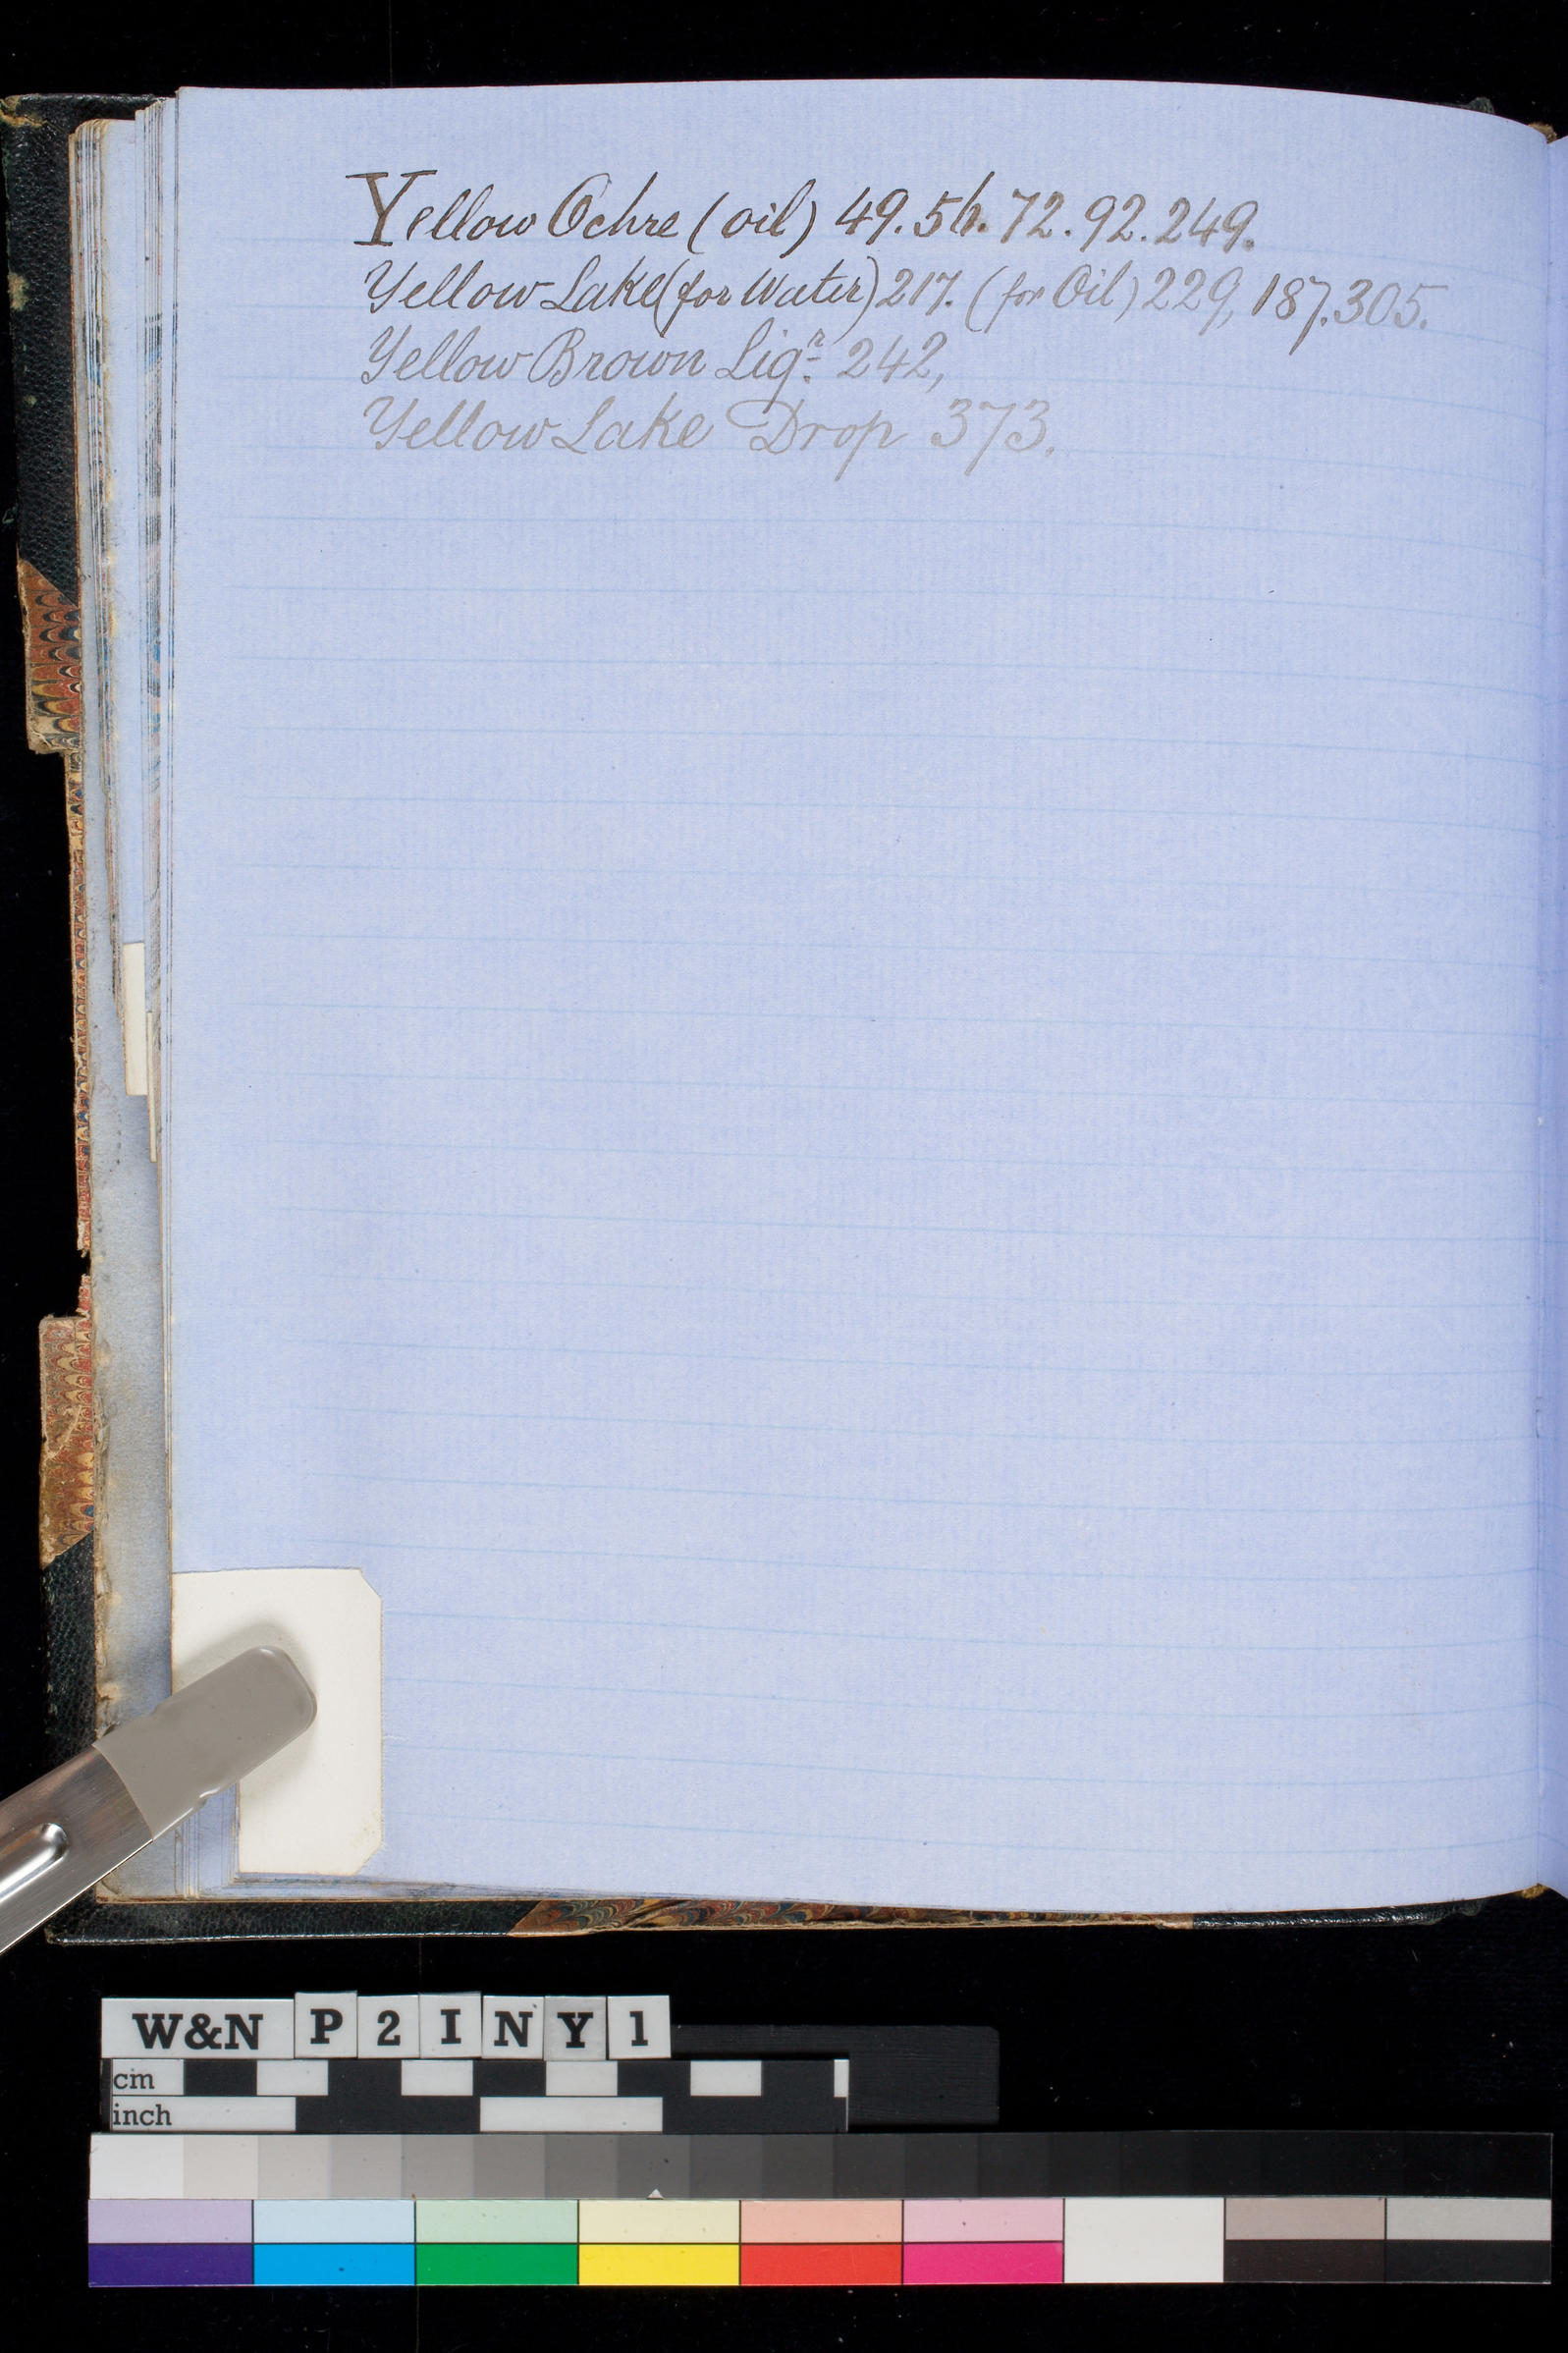 Yellow Ochre (oil) 49. 56. 72. 92. 249.
Yellow Lake (for Water) 217. (for Oil) 229, 187. 305.
Yellow Brown Liqr. 242,
Yellow Lake Drop 373.
W&N P2INY1
cm
inch